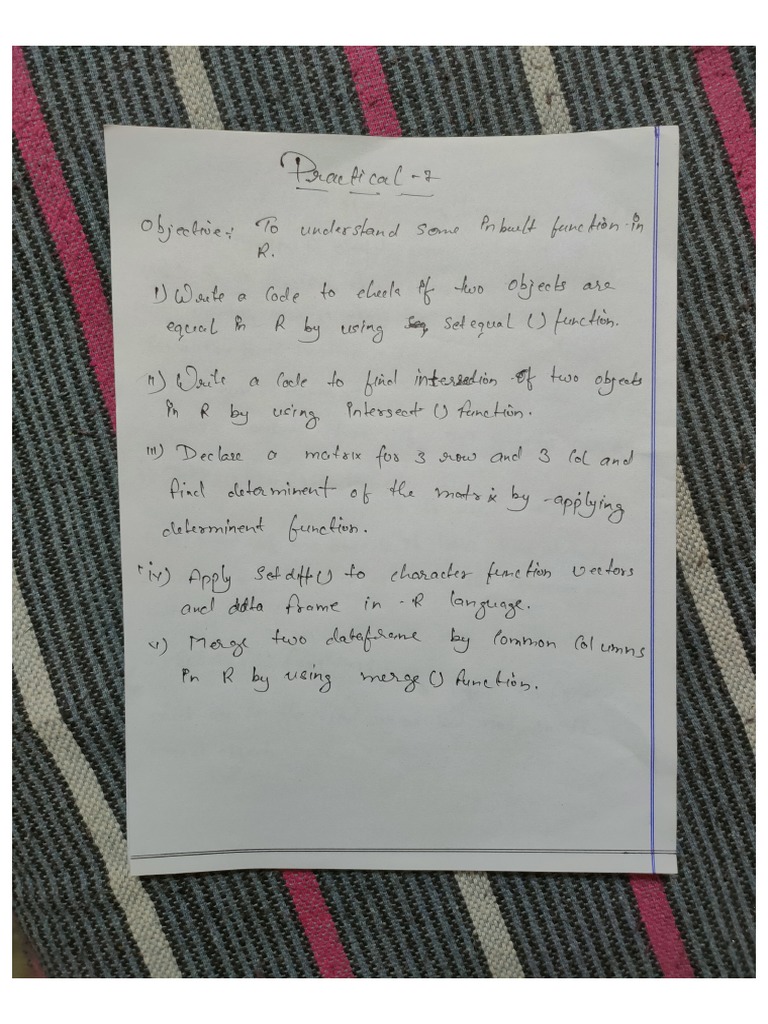 Practical - 7
Objective: To understand some Inbuilt function in
R.
I) Write a Code to check if two objects are
equal in R by using setequal () function.
II) Write a Code to find intersection of two objects
in R by using intersect () function.
III) Declare a matrix for 3 row and 3 Col and
find determinent of the matrix by applying
determinent function.
iv) Apply Setdiff() to character function vectors
and data frame in R language.
v) Merge two dataframe by Common Columns
in R by using merge () function.